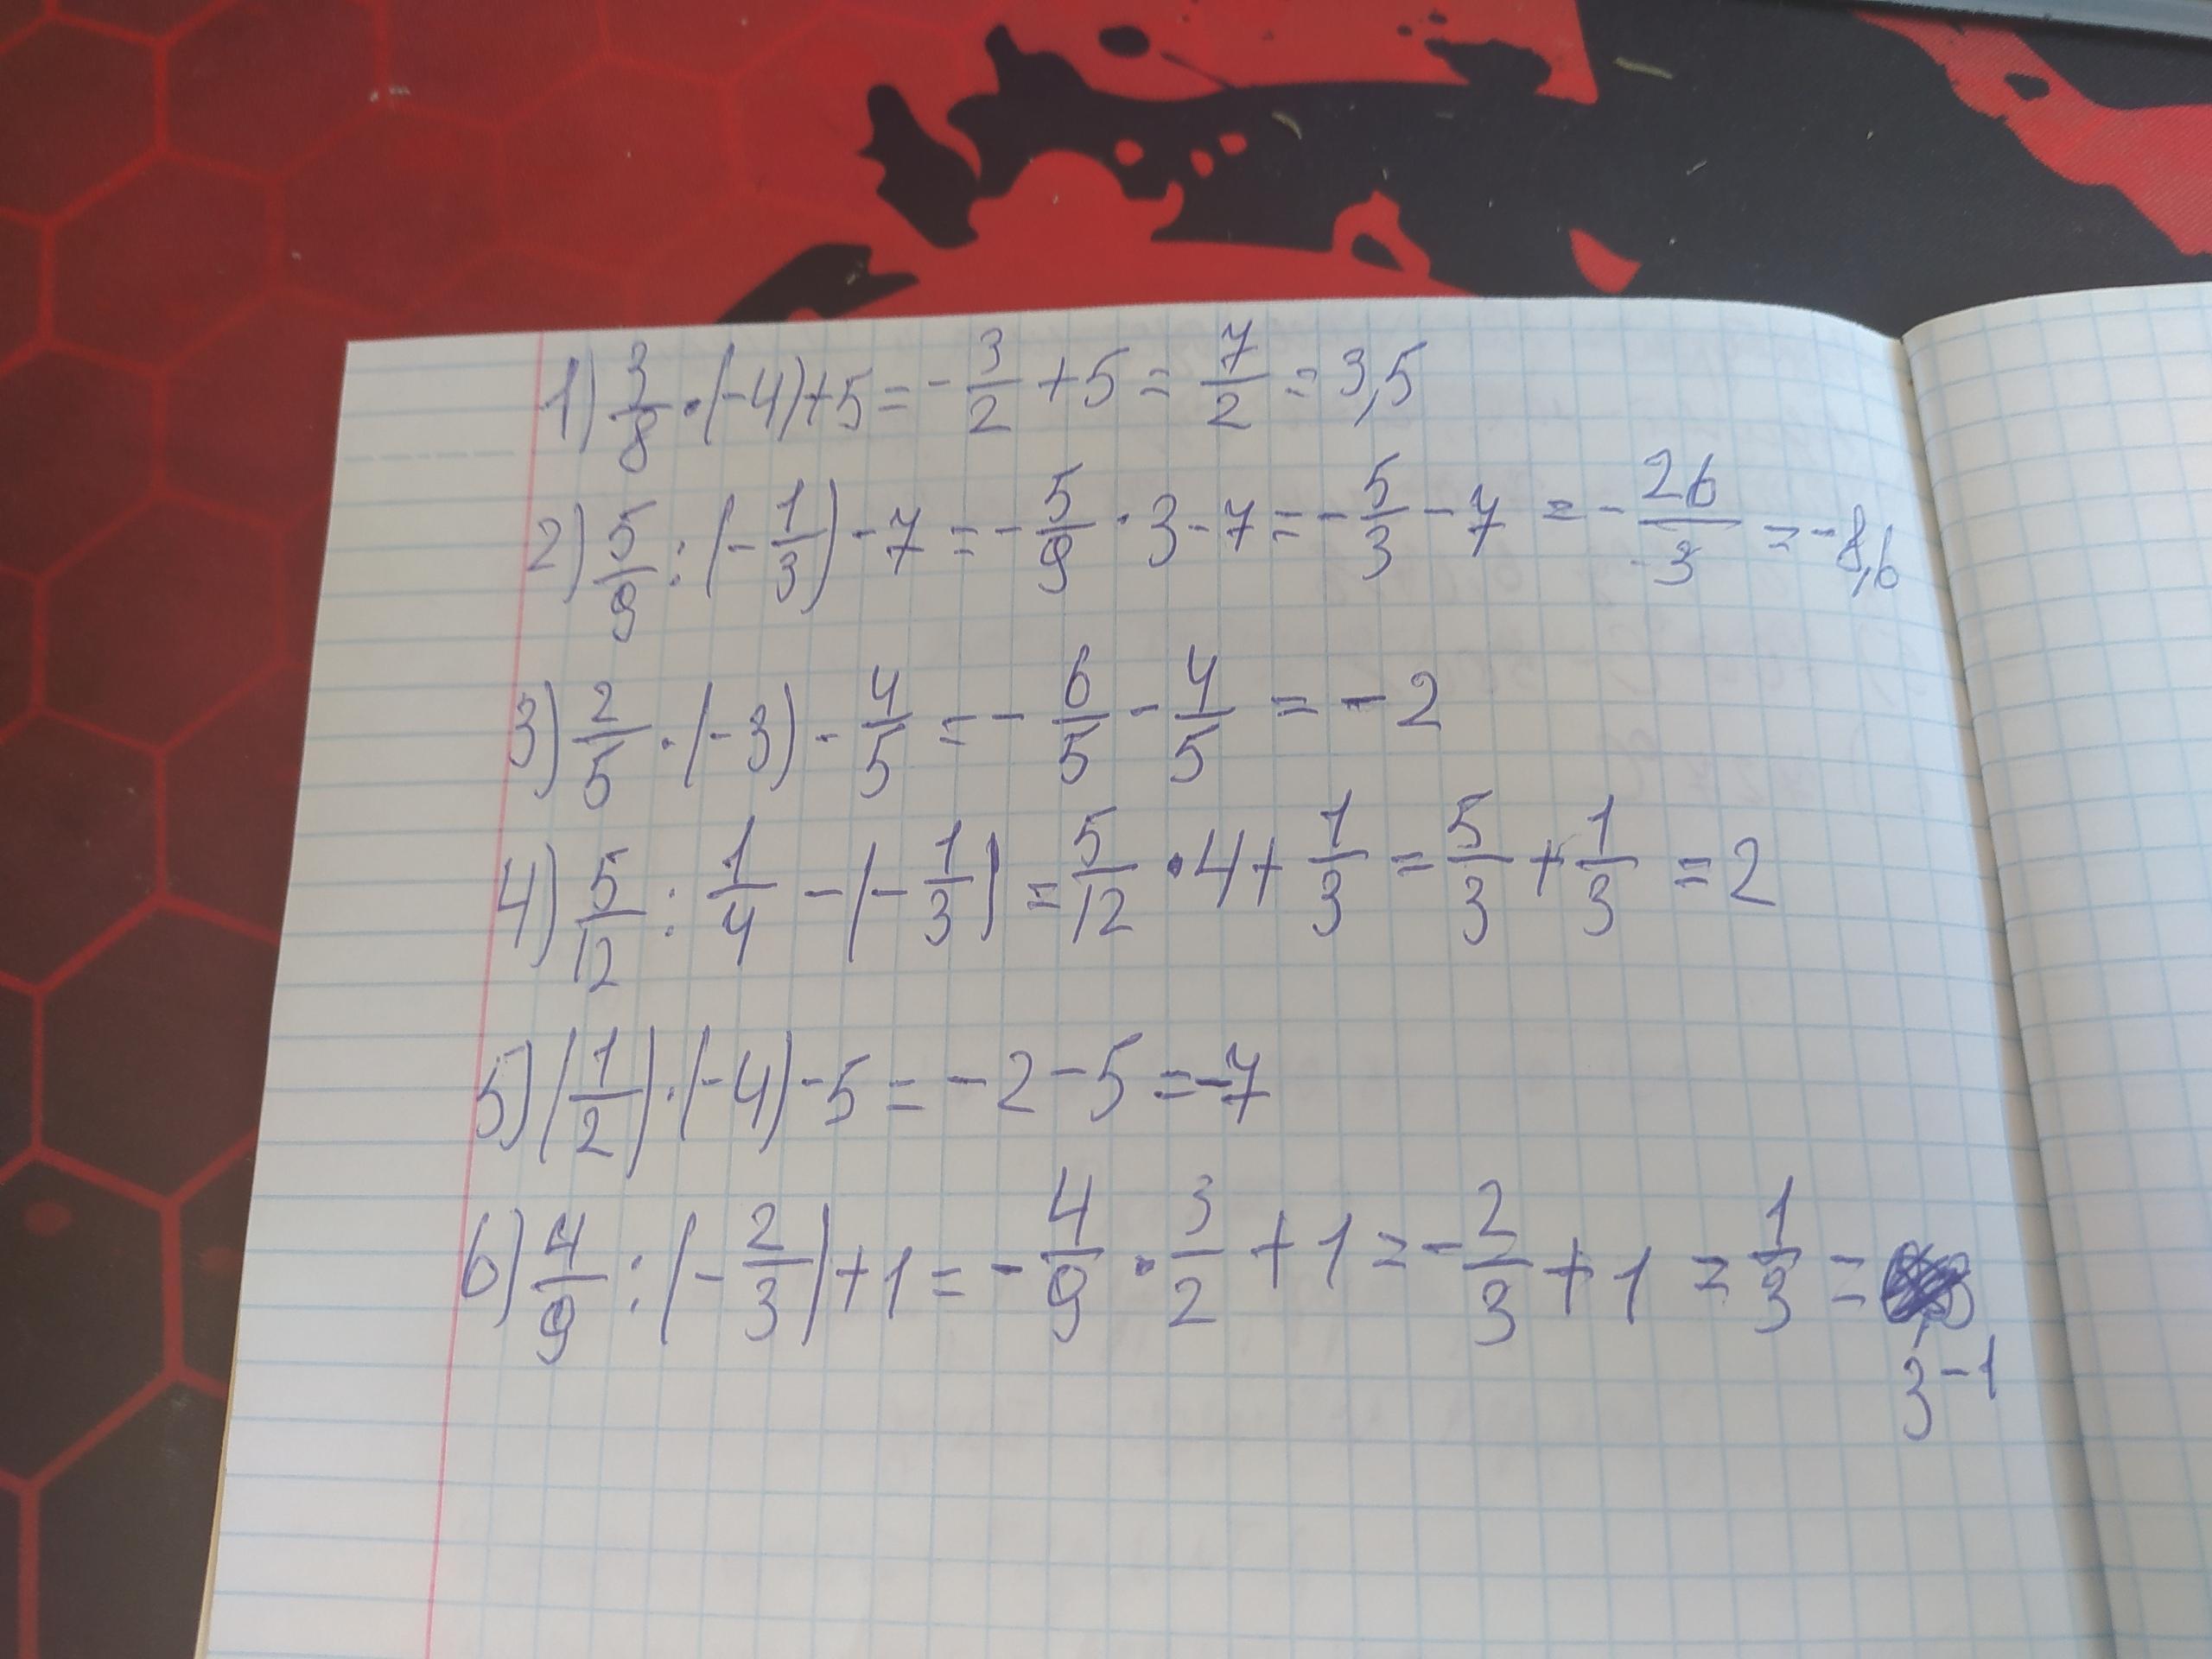 1) 3/8 · (-4)+5 = - 3/2 + 5 = 7/2 = 3,5
2) 5/9 : (- 1/3) - 7 = - 5/9 · 3 - 7 = - 5/3 - 7 = - 26/3 = -8,6
3) 2/5 · (-3) - 4/5 = - 6/5 - 4/5 = - 2
4) 5/12 : 1/4 - (- 1/3) = 5/12 · 4 + 1/3 = 5/3 + 1/3 = 2
5) (1/2) · (-4) - 5 = - 2 - 5 = -7
6) 4/9 : (- 2/3) + 1 = - 4/9 · 3/2 + 1 = - 2/3 + 1 = 1/3 =
3⁻¹